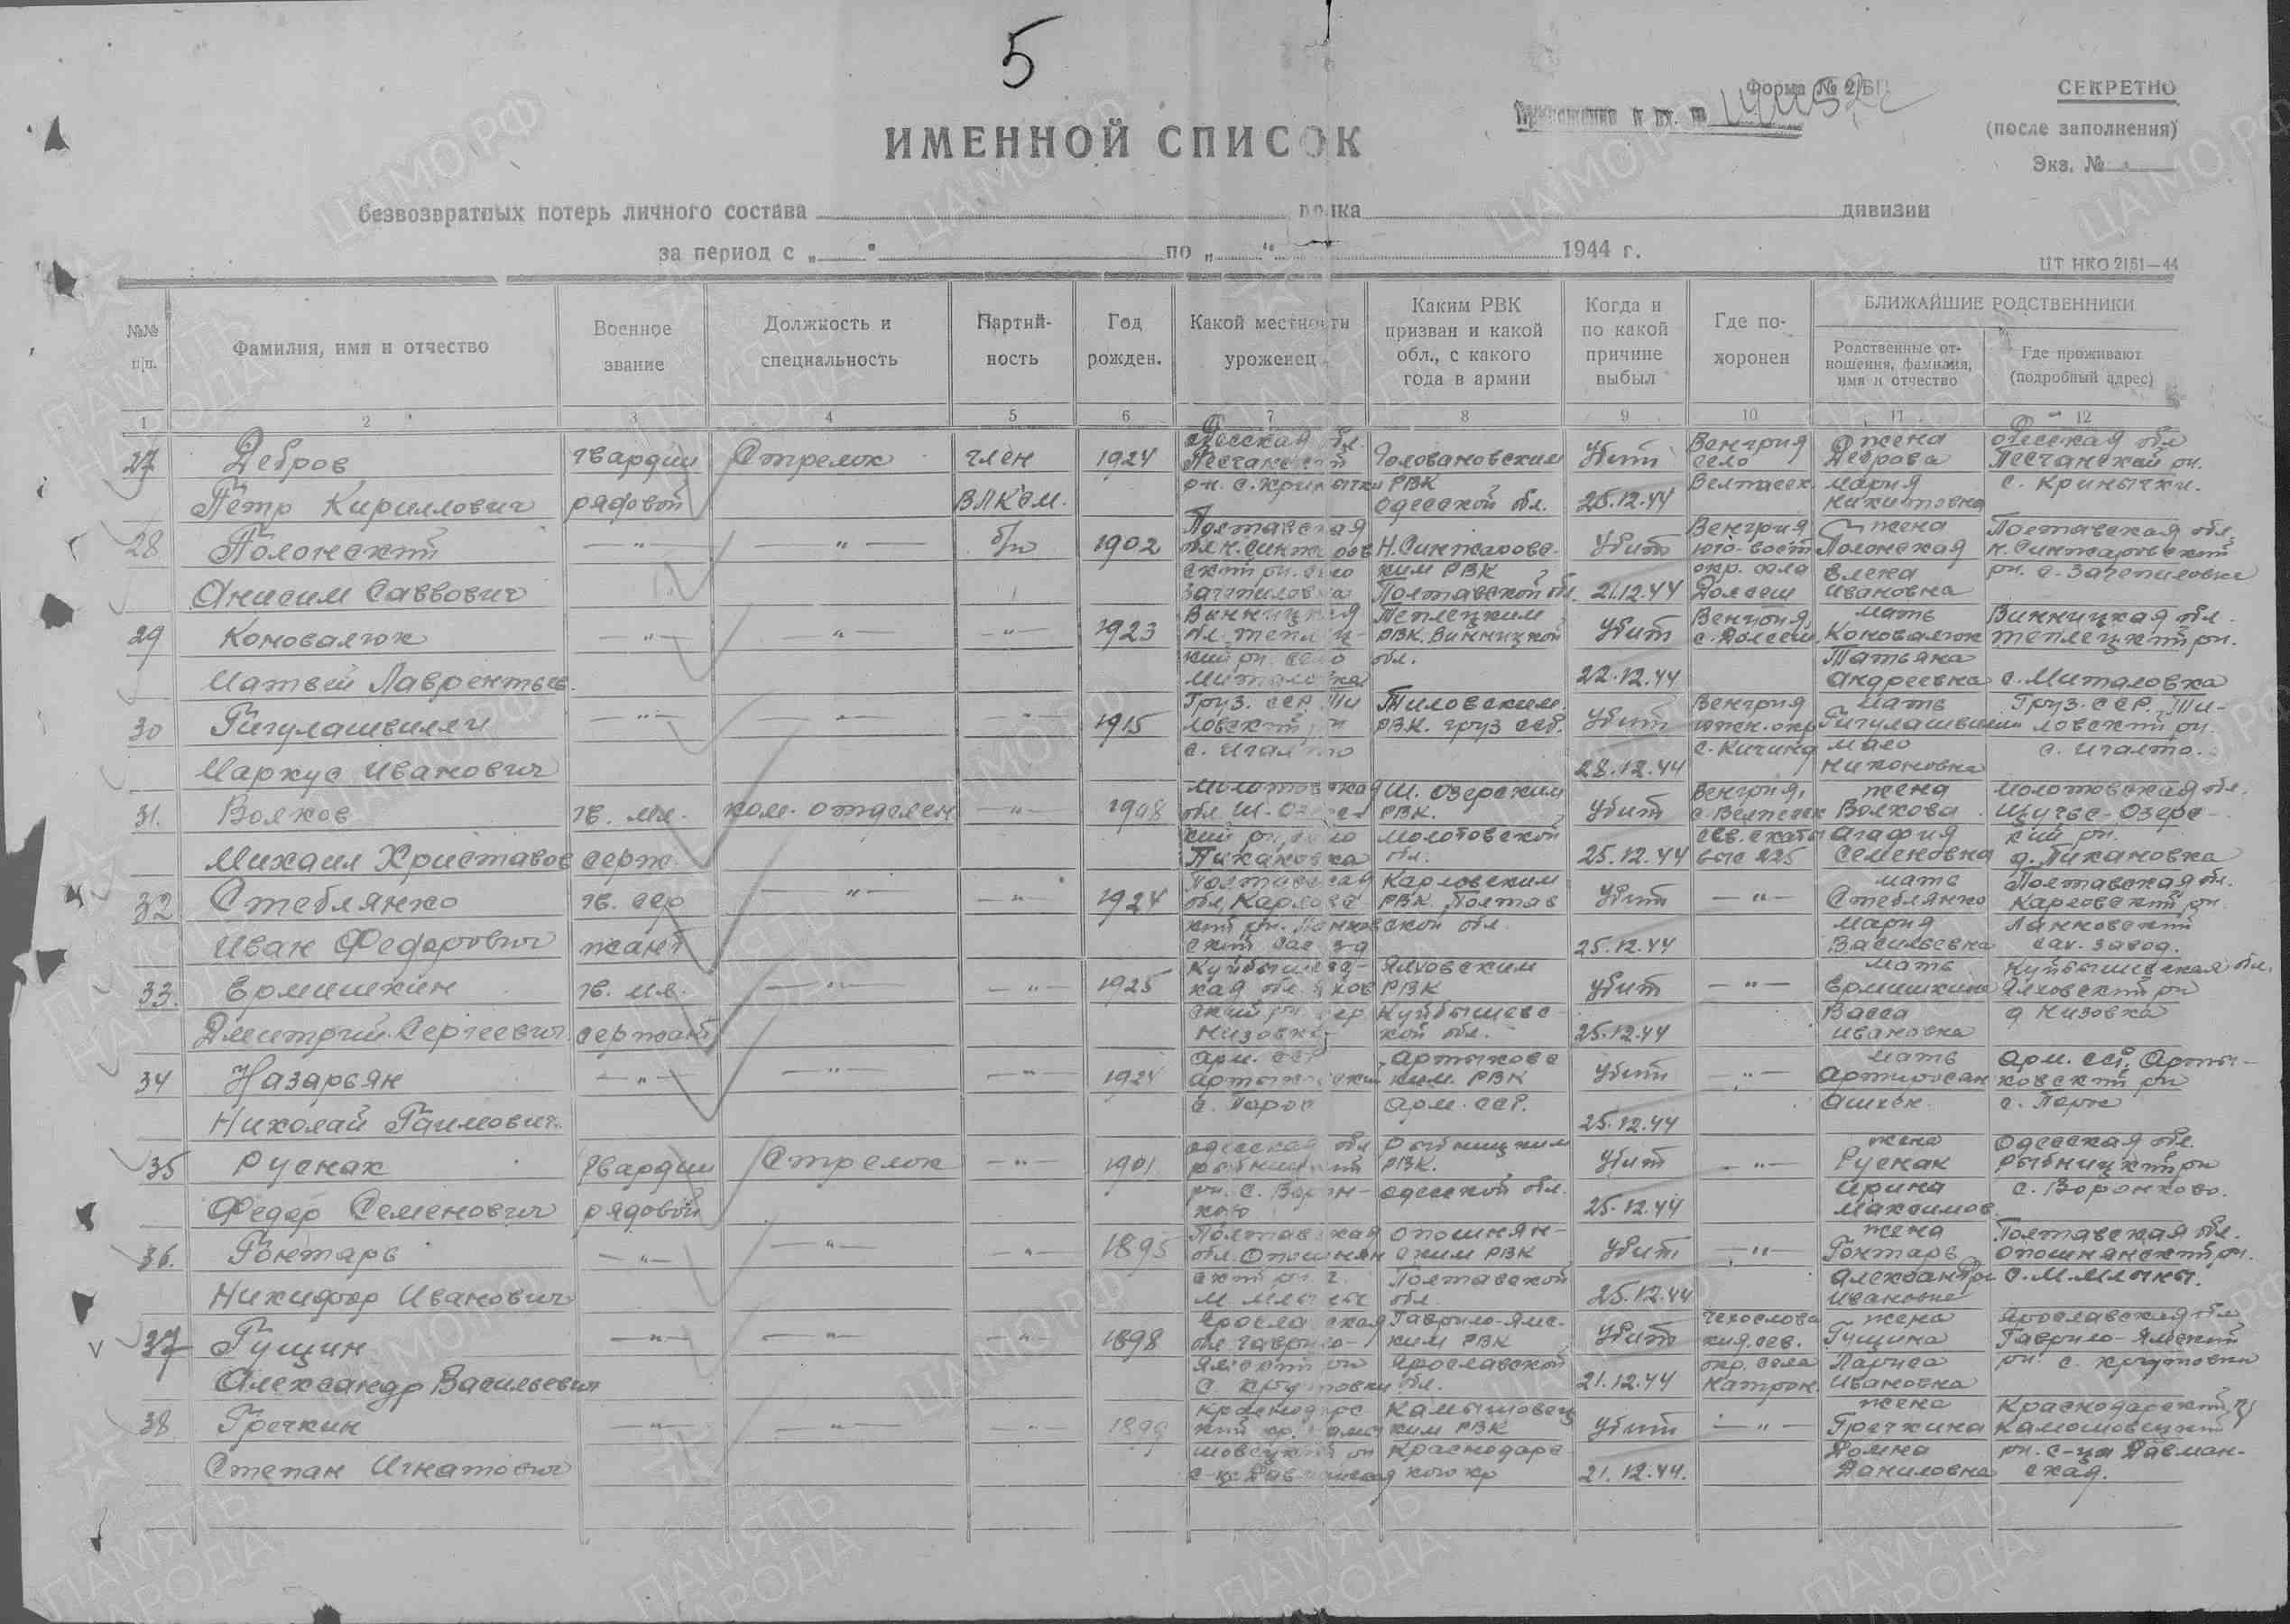 5
Форма № 2/БП
СЕКРЕТНО
Приложение к вх. №
(после заполнения)
ИМЕННОЙ СПИСОК
Экз. №
безвозвратных потерь личного состава полка дивизии
за период с „ “ по „ “ 1944 г.
ЦТ НКО 2151—44
№№ п/п.
Фамилия, имя и отчество
Военное звание
Должность и специальность
Партийность
Год рожден.
Какой местности уроженец
Каким РВК призван и какой обл., с какого года в армии
Когда и по какой причине выбыл
Где похоронен
БЛИЖАЙШИЕ РОДСТВЕННИКИ
Родственные отношения, фамилия, имя и отчество
Где проживают (подробный адрес)
1 2 3 4 5 6 7 8 9 10 11 12
27 Дебров Петр Кириллович гвардии рядовой Стрелок член ВЛКСМ. 1924 Одесская обл. Песчанский рн. с. Кринычки Головановским РВК Одесской обл. Убит 25.12.44 Венгрия село Велпасек. жена Деброва Мария Никитовна Одесская обл Песчанский рн. с. Кринычки.
28 Полонский Анисим Саввович —"— —"— б/п 1902 Полтавская обл Н. Синжаровский рн. село Зачепиловка Н. Синжаровским РВК Полтавской обл. Убит 21.12.44 Венгрия юго-вост окр. села Доллеш жена Полонская Елена Ивановна Полтавская обл. Н. Синжаровский рн. с. Зачепиловка
29 Коновалюк Матвей Лаврентьев. —"— —"— —"— 1923 Винницкая обл. Теплецкий рн. село Миталовка Теплецким РВК. Винницкой обл. Убит 22.12.44 Венгрия с. Доллеш мать Коновалюк Татьяна Андреевна Винницкая обл. Теплецкий рн. с. Миталовка
30 Гигулашвилли Маркус Иванович —"— —"— —"— 1915 Груз. ССР. Тиловский рн с. Игалто Тиловским РВК. Груз ССР. Убит 28.12.44 Венгрия южн. окр с. Кичинд мать Гигулашвили Мало Никоновна Груз. ССР. Тиловский рн. с. Игалто.
31. Волков Михаил Христафов гв. мл. серж. ком. отделен —"— 1908 Молотовская обл. Щ. Озерский рн, село Пикановка Щ. Озерским РВК. Молотовской обл. Убит 25.12.44 Венгрия, с. Велпасек сев. скаты выс 225 жена Волкова Агафия Семеновна Молотовская обл. Щучье-Озерский рн. д. Пикановка
32 Стеблянко Иван Федорович гв. сержант —"— —"— 1924 Полтавская обл, Карловский рн. Ланковский сах. з-д Карловским РВК, Полтавской обл. Убит 25.12.44 —"— мать Стеблянко Мария Васильевна Полтавская обл. Карловский рн. Ланковский сах. завод.
33. Ермишкин Дмитрий Сергеевич. гв. мл. сержант —"— —"— 1925 Куйбышевская обл. Ялховский рн. дер Низовка Ялховским РВК Куйбышевской обл. Убит 25.12.44 —"— мать Ермишкина Васса Ивановна Куйбышевская обл. Ялховский рн д Низовка
34 Назарьян Николай Гаимович. —"— —"— —"— 1924 Арм. ССР Артыковский с. Парон Артыковским. РВК Арм. ССР. Убит 25.12.44 —"— мать Ашхен. Арм. ССР, Артыковский рн
35 Руснак Федор Семенович гвардии рядовой Стрелок —"— 1901 Одесская обл Рыбницкий рн. с. Воронково Рыбницким РВК. Одесской обл. Убит 25.12.44 —"— жена Руснак Ирина Максимов. Одесская обл. Рыбницкий рн с. Воронково.
36. Гонтарь Никифор Иванович —"— —"— —"— 1895 Полтавская обл. Опошнянский рн. с. М. Млыны Опошнянским РВК Полтавской обл. Убит 25.12.44 —"— жена Гонтарь Александра Ивановна Полтавская обл. Опошнянский рн. с. М. Млыны.
37 Гущин Александр Васильевич —"— —"— —"— 1898 Ярославская обл. Гаврило-Ямский рн с Крутовки Гаврило-Ямским РВК Ярославской обл. Убит 21.12.44 Чехословакия, сев. окр. села жена Гущина Лариса Ивановна Ярославская обл Гаврило-Ямский рн. с. Крутовки
38 Гречкин Степан Игнатович —"— —"— —"— 1899 Краснодарский кр. рн Камышовец ким РВК Краснодарского кр Убит 21.12.44. —"— жена Гречкина Домна Даниловна Краснодарский рн. с-ца Давманская.